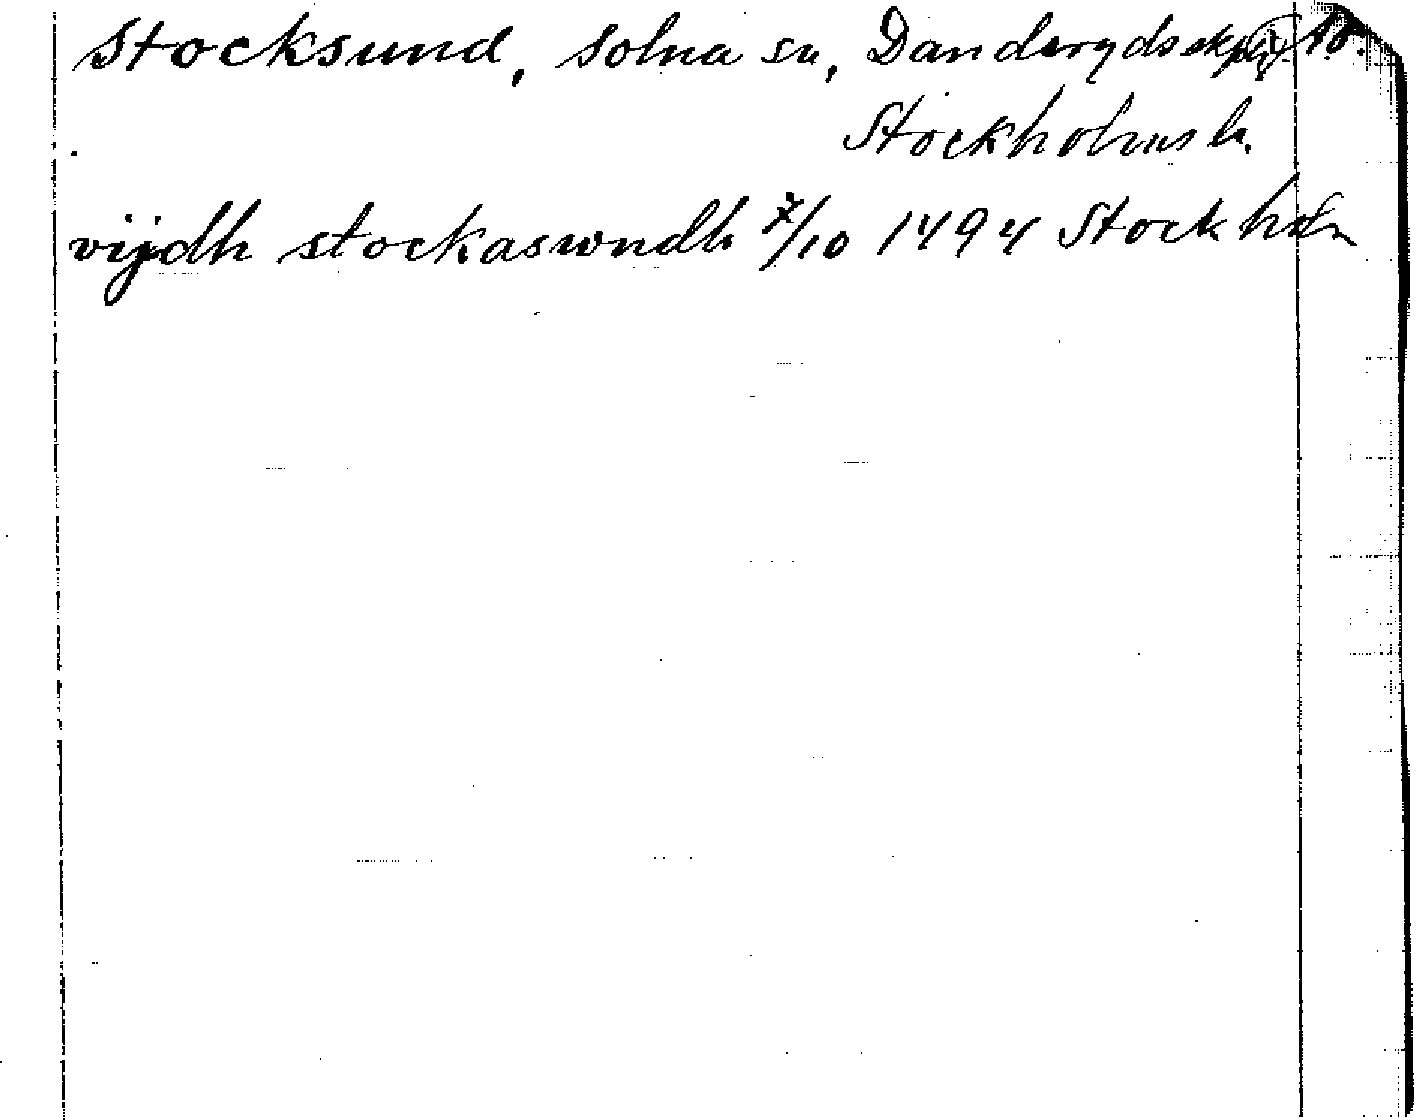 Stocksund, Solna sn, Danderyds skplg 10.
Stockholms l.
vijdh stockaswndh 7/10 1494 Stockholm